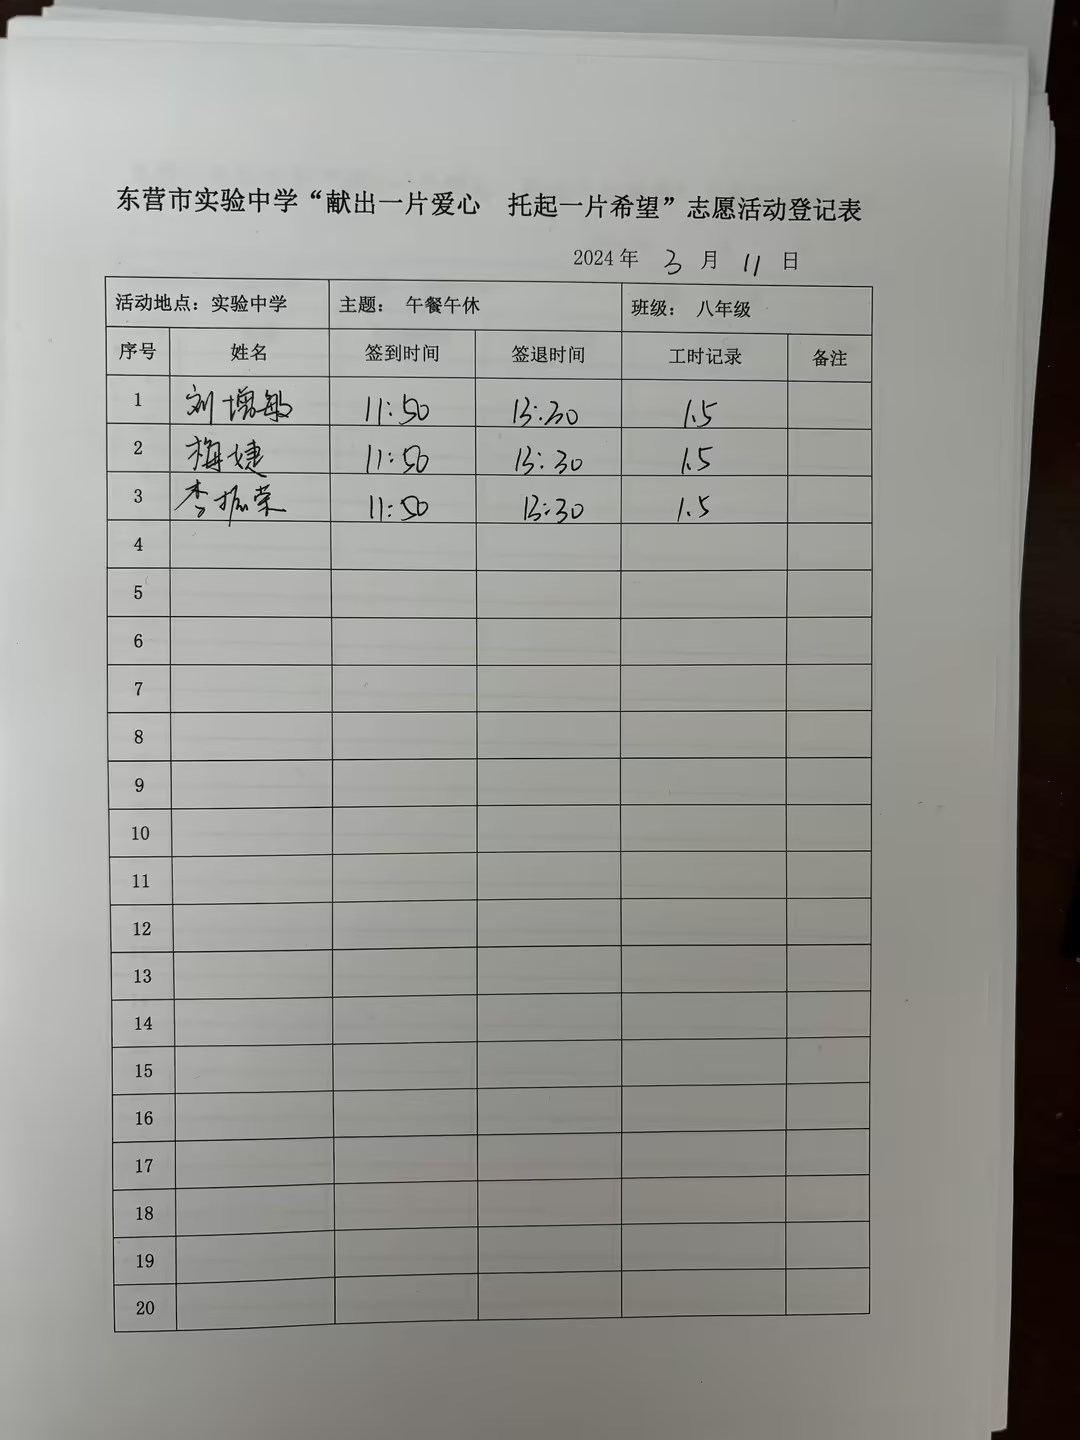 东营市实验中学“献出一片爱心 托起一片希望”志愿活动登记表
2024 年 3 月 11 日
活动地点：实验中学 主题： 午餐午休 班级： 八年级
序号 姓名 签到时间 签退时间 工时记录 备注
1 刘增敏 11:50 13:30 1.5
2 梅婕 11:50 13:30 1.5
3 李振荣 11:50 13:30 1.5
4
5
6
7
8
9
10
11
12
13
14
15
16
17
18
19
20